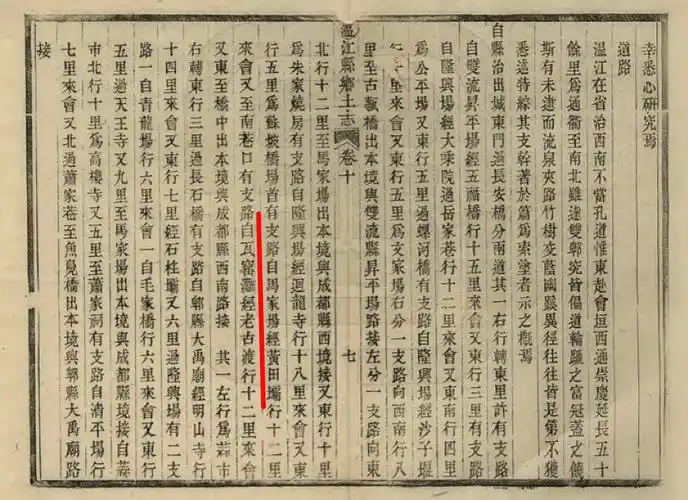 幸悉心研究焉
道路
溫江在省治西南不當孔道惟東赴會垣西通崇慶延長五十
餘里爲通衢至南北雖達雙郫究皆偪道輪蹏之富冠蓋之
斯有未逮而流泉夾路竹樹交蔭幽蹊異徑往往皆是第不獲
悉述特綜其支幹著於篇爲索塗者示之概焉
自縣治出城東門過長安橋分兩道其一右行轉東里許有支路
自雙流昇平場經五福橋行十五里來會又東行三里有支路
自隆興場經大乘院過岳家巷行十二里來會又東南行四里
爲公平場又東行五里過螺河橋有支路自隆興場經沙子堰
里來會又東行五里爲文家場右分一支路向西南行八
里至古橋出本境與雙流縣昇平場路接左分一支路向東
溫江縣鄉土志 卷十 七
北行十二里至馬家場出本境與成都縣西境接又東行十里
爲朱家燒房有支路自隆興場經迴龍寺行十八里來會又東
行五里爲蘇坡橋場首有支路自馬家場經黃田壩行十二里
來會又至南巷口有支路自瓦窰灘經老古渡行十二里來會
又東至橋中出本境與成都縣西南路接 其一左行爲蒜市
右轉東行三里過長石橋有支路自郫縣大禹廟經明山寺行
十四里來會又東行七里經石柱壩又六里過隆興場有二支
路一自青龍場行六里來會一自毛家橋行六里來會又東行
五里過天王寺又九里至馬家場出本境與成都縣境接自蒜
市北行十里爲高樓寺又五里至蕭家祠有支路自清平場行
七里來會又北過蕭家巷至魚鳧橋出本境與郫縣大禹廟路
接